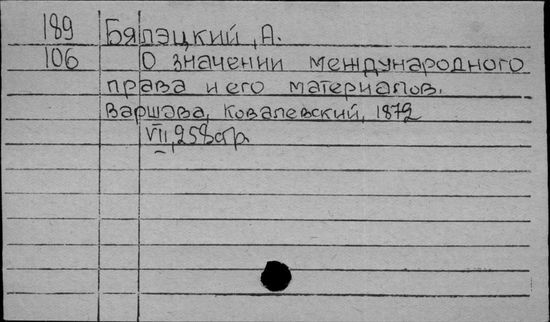 189 Бялэцкий, А.
106 О значении международного
права и его материалов.
Варшава, Ковалевский, 1872
VII, 258 стр.